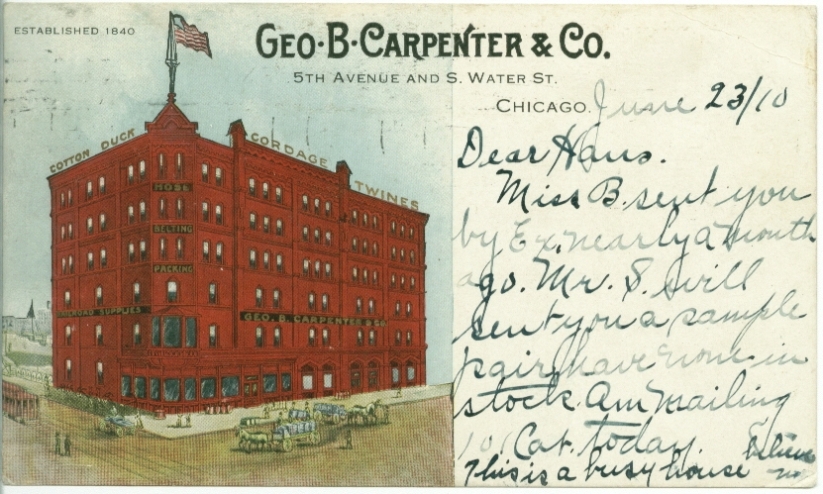 ESTABLISHED 1840
GEO·B·CARPENTER & CO.
5TH AVENUE AND S. WATER ST.
CHICAGO. June 23/10
COTTON DUCK
CORDAGE
TWINES
HOSE
BELTING
PACKING
RAILROAD SUPPLIES
GEO. B. CARPENTER & CO.
Dear Hans.
Miss B. sent you
by Ex. nearly a month
ago. Mr. S. will
sent you a sample
pair, have none in
stock. Am mailing
Cat. today.
This is a busy house